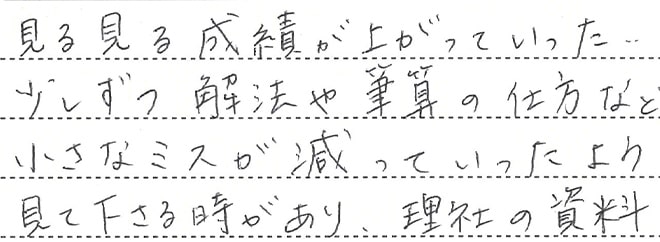 見る見る成績が上がっていった‥
少しずつ解法や筆算の仕方など
小さなミスが減っていったより
見て下さる時があり、理社の資料